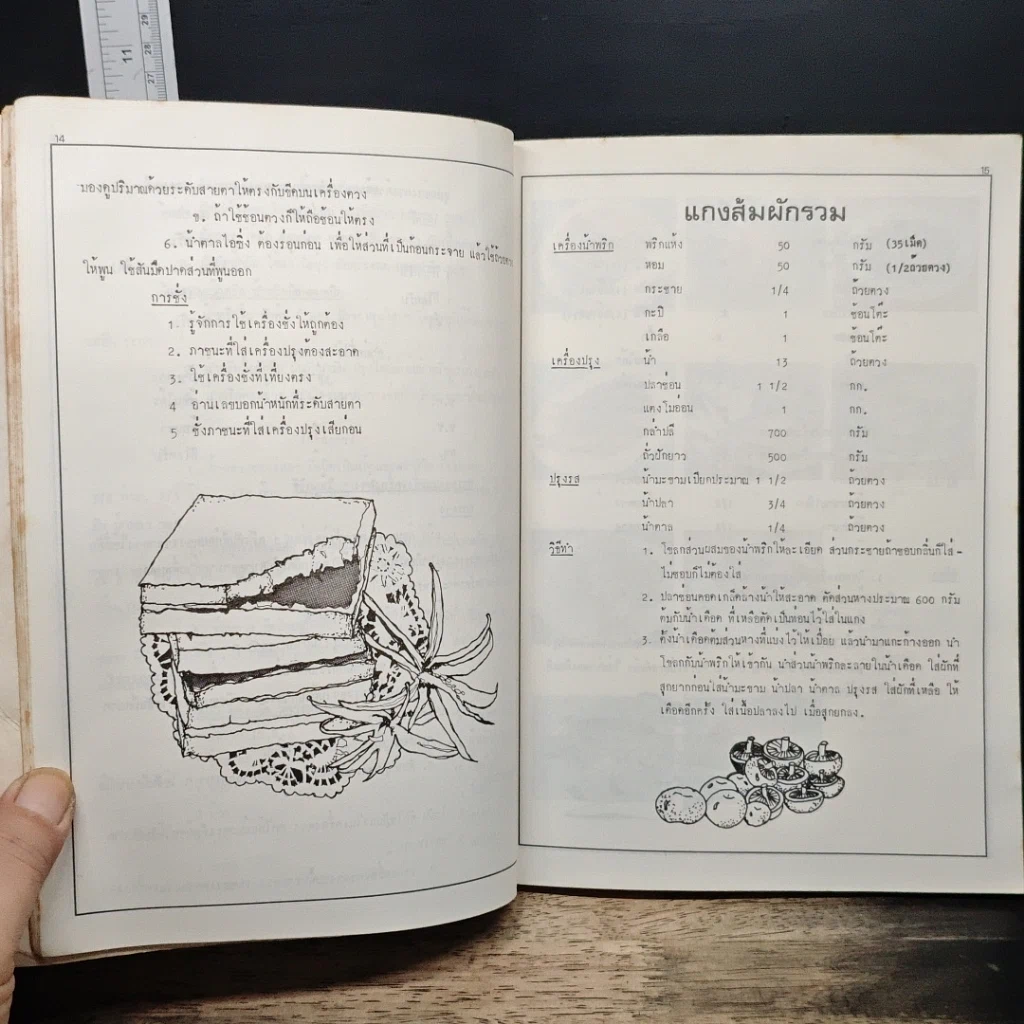 29
11
28
27
14
มองดูปริมาณด้วยระดับสายตาให้ตรงกับขีดบนเครื่องตวง
ข. ถ้าใช้ช้อนตวงก็ให้ถือช้อนให้ตรง
6. น้ำตาลไอซิ่ง ต้องร่อนก่อน เพื่อให้ส่วนที่เป็นก้อนกระจาย แล้วใช้ถ้วยตวง
ให้พูน ใช้สันมีดปาดส่วนที่พูนออก
การชั่ง
1. รู้จักการใช้เครื่องชั่งให้ถูกต้อง
2. ภาชนะที่ใส่เครื่องปรุงต้องสะอาด
3. ใช้เครื่องชั่งที่เที่ยงตรง
4 อ่านเลขบอกน้ำหนักที่ระดับสายตา
5 ชั่งภาชนะที่ใส่เครื่องปรุงเสียก่อน
15
แกงส้มผักรวม
เครื่องน้ำพริก พริกแห้ง 50 กรัม (35เม็ด)
หอม 50 กรัม (1/2ถ้วยตวง)
กระชาย 1/4 ถ้วยตวง
กะปิ 1 ช้อนโต๊ะ
เกลือ 1 ช้อนโต๊ะ
เครื่องปรุง น้ำ 13 ถ้วยตวง
ปลาช่อน 1 1/2 กก.
แตงโมอ่อน 1 กก.
กล่ำปลี 700 กรัม
ถั่วฝักยาว 500 กรัม
ปรุงรส น้ำมะขามเปียกประมาณ 1 1/2 ถ้วยตวง
น้ำปลา 3/4 ถ้วยตวง
น้ำตาล 1/4 ถ้วยตวง
วิธีทำ 1. โขลกส่วนผสมของน้ำพริกให้ละเอียด ส่วนกระชายถ้าชอบกลิ่นก็ใส่ -
ไม่ชอบก็ไม่ต้องใส่
2. ปลาช่อนขอดเกล็ดล้างน้ำให้สะอาด ตัดส่วนหางประมาณ 600 กรัม
ต้มกับน้ำเดือด ที่เหลือตัดเป็นท่อนไว้ใส่ในแกง
3. ตั้งน้ำเดือดต้มส่วนหางที่แบ่งไว้ให้เปื่อย แล้วนำมาแกะก้างออก นำ
โขลกกับน้ำพริกให้เข้ากัน นำส่วนน้ำพริกละลายในน้ำเดือด ใส่ผักที่
สุกยากก่อนใส่น้ำมะขาม น้ำปลา น้ำตาล ปรุงรส ใส่ผักที่เหลือ ให้
เดือดอีกครั้ง ใส่เนื้อปลาลงไป เมื่อสุกยกลง.